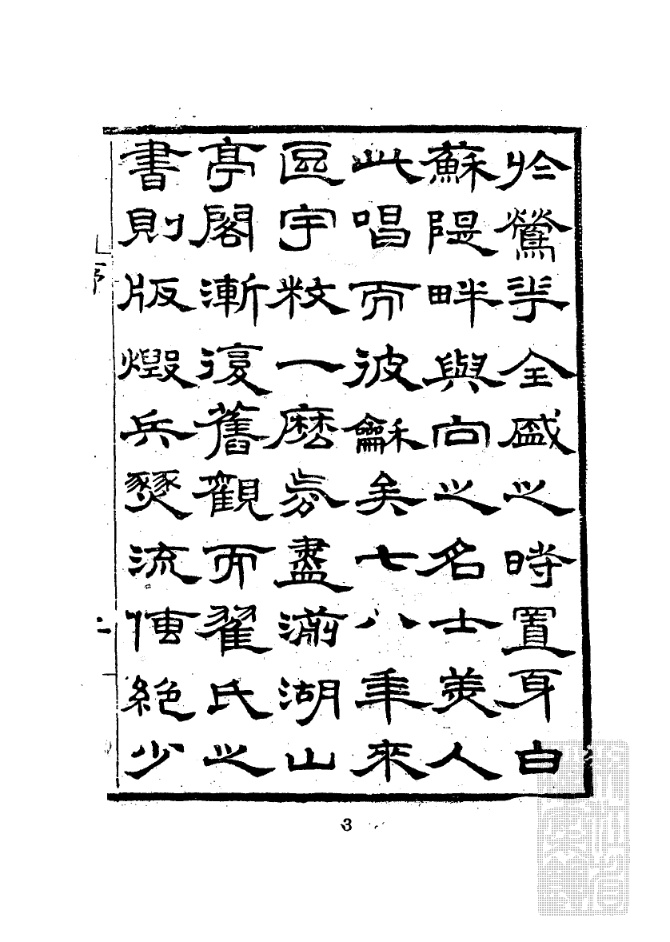 於鶯華全盛之時置身白
蘇隄畔與向之名士美人
此唱而彼龢矣七八年來
區宇敉一麽氛盡湔湖山
亭閣漸復舊觀而翟氏之
書則版燬兵燹流傳絕少
3